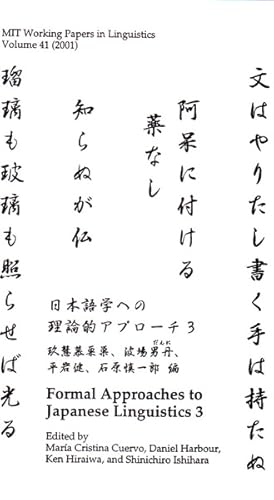 MIT Working Papers in Linguistics
Volume 41 (2001)
文はやりたし書く手は持たぬ
阿呆に付ける
薬なし
知らぬが仏
瑠璃も玻璃も照らせば光る
日本語学への
理論的アプローチ 3
波場男丹、
平岩健、石原慎一郎 編
Formal Approaches to
Japanese Linguistics 3
Edited by
María Cristina Cuervo, Daniel Harbour,
Ken Hiraiwa, and Shinichiro Ishihara